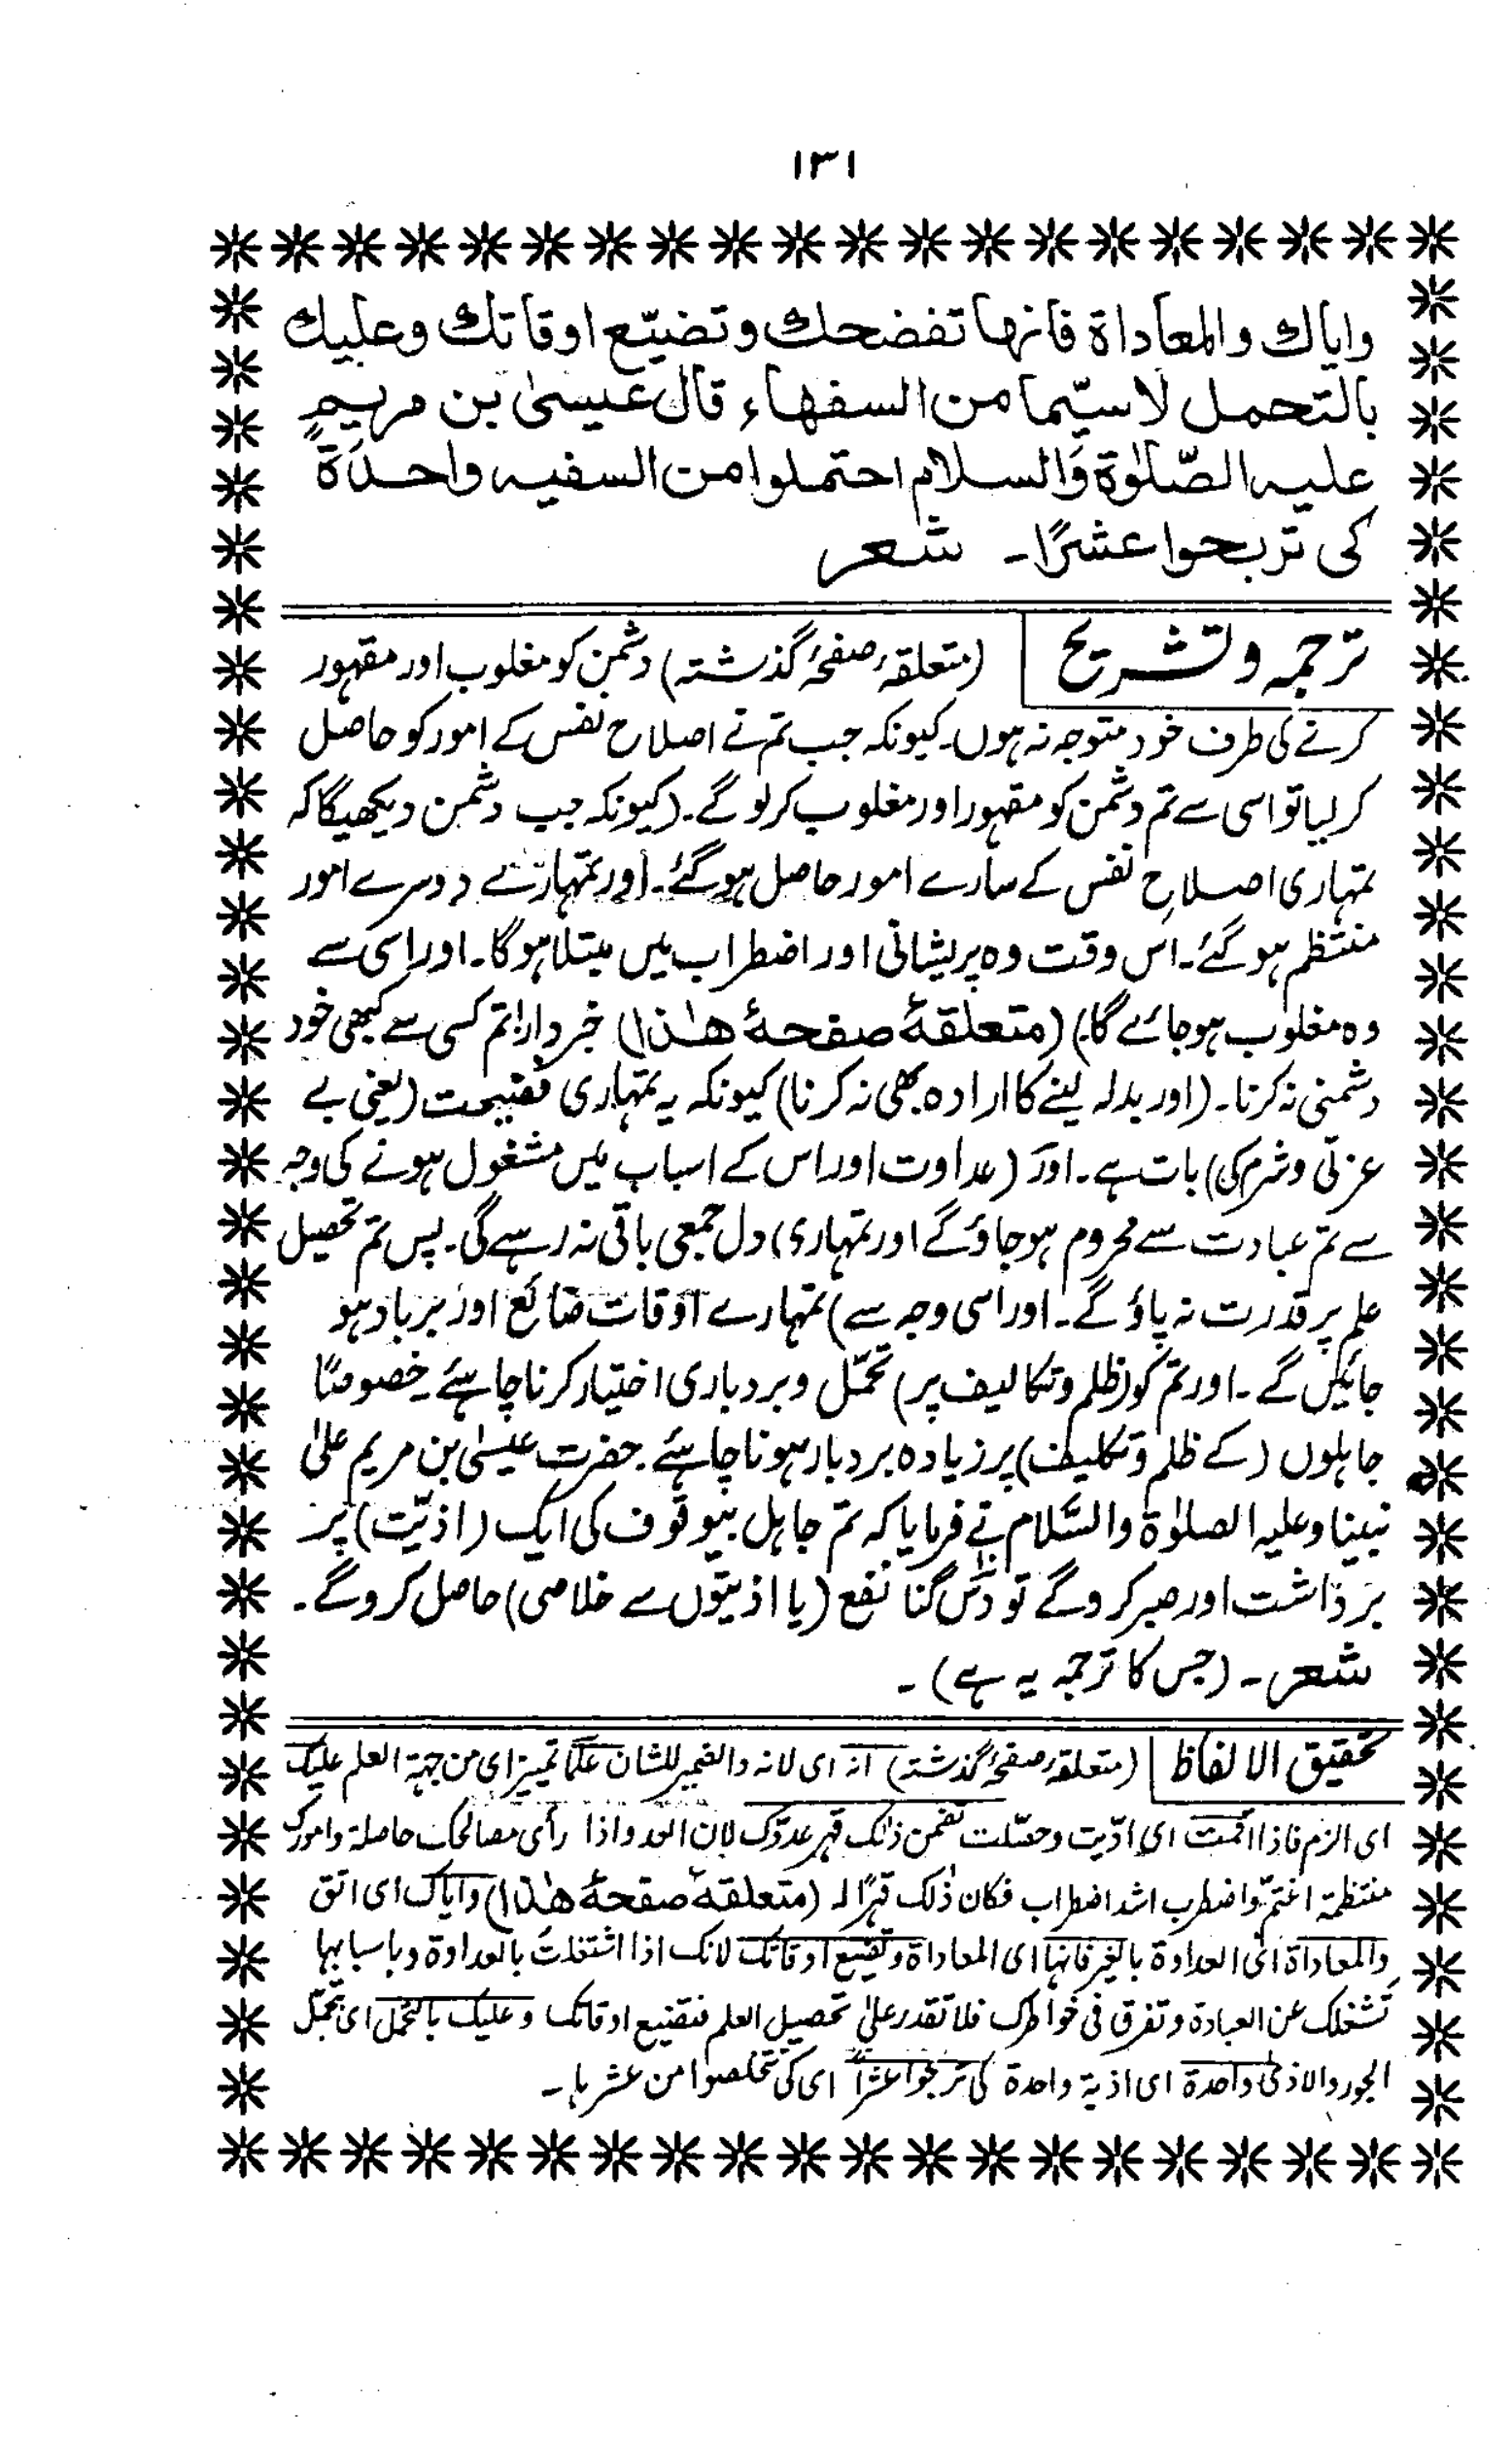 ۱۳۱
واياك والمعاداة فانها تفضحك وتضيّع اوقاتك وعليك
بالتحمل لاسيّما من السفهاء قال عيسىٰ بن مريم
عليه الصّلوٰة والسلام احتملوا من السفيه واحدةً
كى تربحوا عشرًا۔ شعر
ترجمہ وتشریح (متعلقہ صفحۂ گذشتہ) دشمن کو مغلوب اور مقہور
کرنے کی طرف خود متوجہ نہ ہوں۔ کیونکہ جب تم نے اصلاح نفس کے امور کو حاصل
کر لیا تو اسی سے تم دشمن کو مقہور اور مغلوب کر لو گے۔ (کیونکہ جب دشمن دیکھیگا کہ
تمہاری اصلاحِ نفس کے سارے امور حاصل ہو گئے۔ اور تمہارے دوسرے امور
منتظم ہو گئے۔ اس وقت وہ پریشانی اور اضطراب میں مبتلا ہوگا۔ اور اسی سے
وہ مغلوب ہو جائے گا۔) (متعلقۂ صفحۂ ھٰذا) خبردار! تم کسی سے کبھی خود
دشمنی نہ کرنا۔ (اور بدلہ لینے کا ارادہ بھی نہ کرنا) کیونکہ یہ تمہاری فضیحت (یعنی بے
عزتی وشرم کی) بات ہے۔ اور (عداوت اور اس کے اسباب میں مشغول ہونے کی وجہ
سے تم عبادت سے محروم ہو جاؤ گے اور تمہاری) دل جمعی باقی نہ رہے گی۔ پس تم تحصیل
علم پر قدرت نہ پاؤ گے۔ اور اسی وجہ سے) تمہارے اوقات ضائع اور برباد ہو
جائیں گے۔ اور تم کو (ظلم وتکالیف پر) تحمّل وبردباری اختیار کرنا چاہئے خصوصًا
جاہلوں (کے ظلم وتکلیف) پر زیادہ بردبار ہونا چاہئے۔ حضرت عیسیٰ بن مریم علیٰ
نبینا وعلیہ الصلوٰۃ والسّلام نے فرمایا کہ تم جاہل بیوقوف کی ایک (اذیّت) پر
برداشت اور صبر کرو گے تو دس گنا نفع (یا اذیتوں سے خلاصی) حاصل کرو گے۔
شعر۔ (جس کا ترجمہ یہ ہے)۔
تحقیق الالفاظ (متعلقہ صفحۂ گذشتہ) انہ ای لانہ والضمیر للشان علمًا تمییز ای من جہۃ العلم علیک
ای الزم فاذا اقمت ای ادّیت وحصّلت تضمن ذٰلک قہر عدوّک لان العدو اذا رأی مصالحک حاصلۃ وامورک
منتظمۃ اغتمّ واضطرب اشد اضطراب فکان ذٰلک قہرًا لہ (متعلقۂ صفحۂ ھٰذا) وایاک ای اتق
والمعاداۃ ای العداوۃ بالغیر فانہا ای المعاداۃ وتضیع اوقاتک لانک اذا اشتغلت بالعداوۃ وباسبابہا
تشغلک عن العبادۃ وتفرق فی خواطرک فلا تقدر علیٰ تحصیل العلم فتضیع اوقاتک وعلیک بالتحمل ای تحمّل
الجور والاذیٰ واحدۃ ای اذیۃ واحدۃ کی تربحوا عشرًا ای کی تخلصوا من عشرہا۔